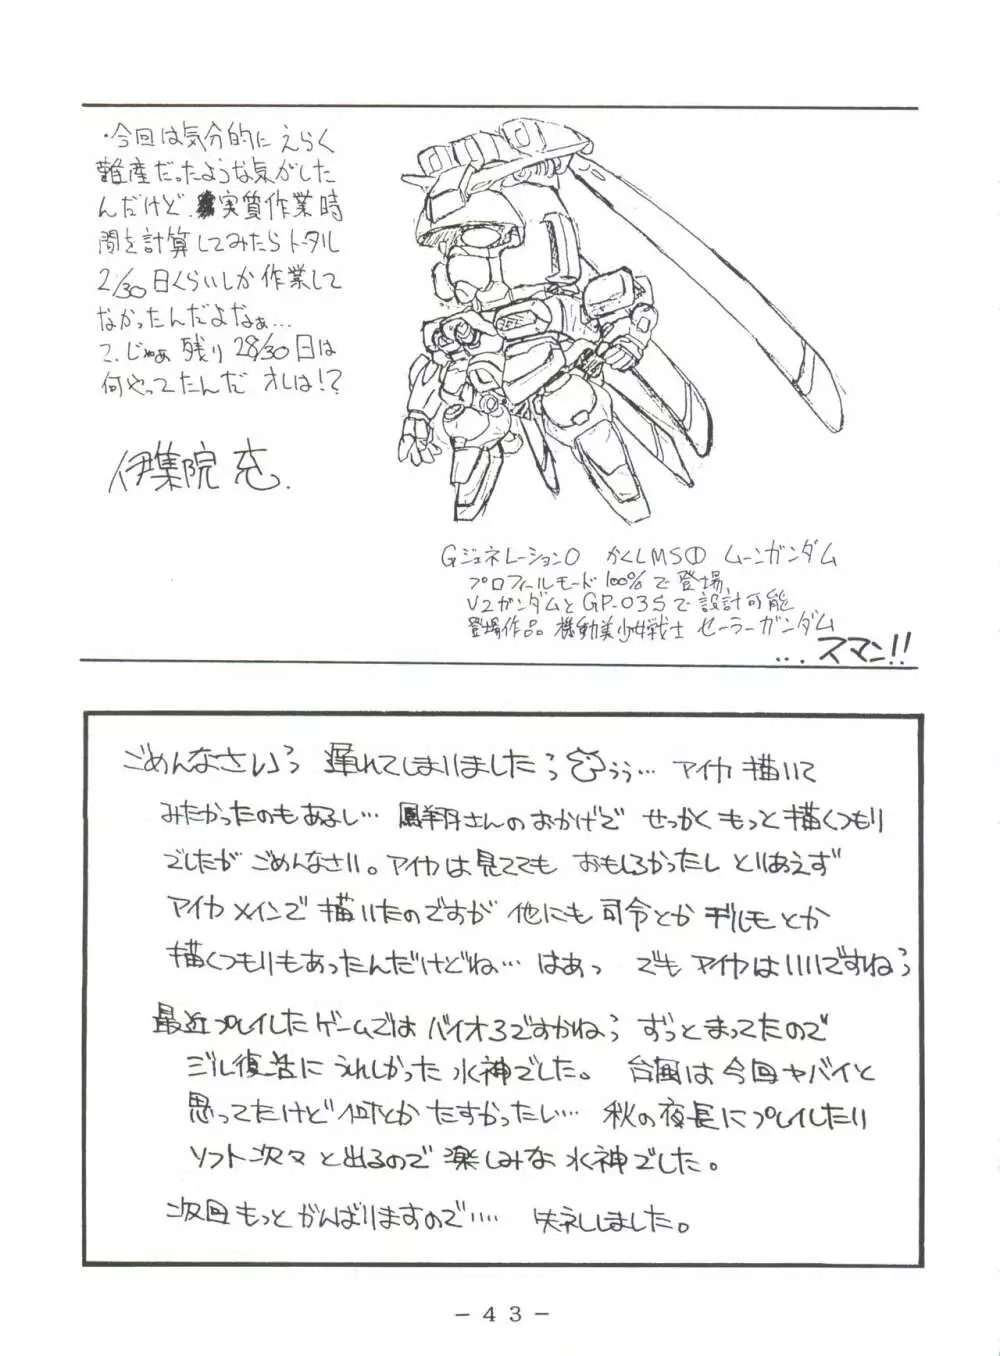 ・今回は気分的にえらく
難産だったような気がした
んだけど、実質作業時
間を計算してみたらトータル
2/30日くらいしか作業して
なかったんだよなぁ…
て、じゃぁ残り28/30日は
何やってたんだ オレは!?
伊集院 充.
Gジェネレーション0 かくしMS① ムーンガンダム
プロフィールモード100%で登場、
V2ガンダムとGP-03Sで設計可能
登場作品。機動美少女戦士 セーラーガンダム
...スマン!!
ごめんなさいぅ 遅れてしまいましたぅ うぅ… アイカ描いて
みたかったのもあるし… 鳳翔さんのおかげで せっかくもっと描くつもり
でしたが ごめんなさい。アイカは見ててもおもしろかったし とりあえず
アイカメインで描いたのですが 他にも司令とか デルモとか
描くつもりもあったんだけどね… はあっ でもアイカはいいですねぅ
最近プレイしたゲームではバイオ3ですかねぅ ずっとまってたので
ジル復活にうれしかった水神でした。 台風は今回ヤバイと
思ってたけど何とかたすかったい… 秋の夜長にプレイしたい
ソフト次々と出るので楽しみな水神でした。
次回もっとがんばりますので…. 失ネしました。
－43－